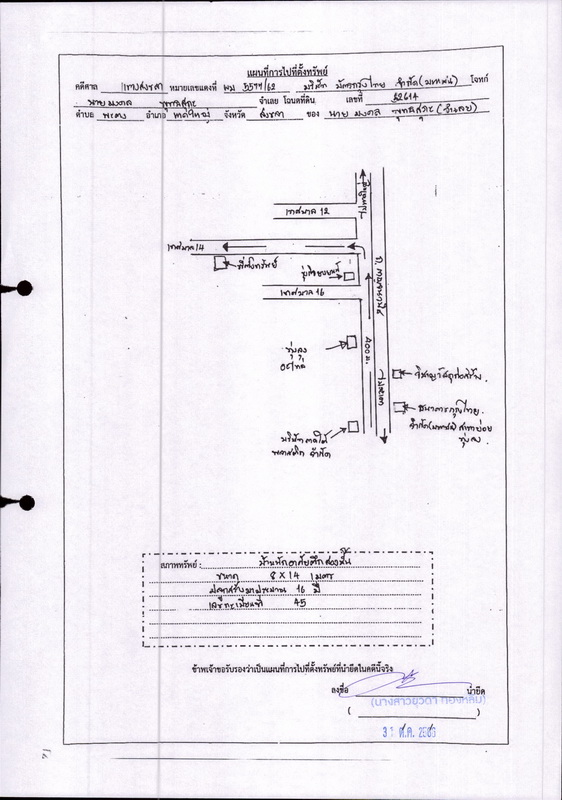 แผนที่การไปที่ตั้งทรัพย์
คดีศาล แขวงสงขลา หมายเลขแดงที่ ผบ 3577/62 บริษัท บัตรกรุงไทย จำกัด (มหาชน) โจทก์
นาย มงคล จำเลย โฉนดที่ดิน เลขที่ 32614
ตำบล พะตง อำเภอ หาดใหญ่ จังหวัด สงขลา ของ นาย มงคล
เทศบาล 12
เทศบาล 14
ที่ตั้งทรัพย์
เทศบาล 16
ถ. กาญจนวนิช
400 ม.
ทุ่งลุง
วัสดุก่อสร้าง
ธนาคารกรุงไทย
จำกัด (มหาชน) สาขาย่อย
ทุ่งลุง
บริษัท
พลาสติก จำกัด
สภาพทรัพย์ : บ้านพักอาศัยตึกสองชั้น
ขนาด 8 X 14 เมตร
ปลูกสร้างมาประมาณ 16 ปี
เลขทะเบียนที่ 45
ข้าพเจ้าขอรับรองว่าเป็นแผนที่การไปที่ตั้งทรัพย์ที่นำยึดในคดีนี้จริง
ลงชื่อ นำยึด
(นางสาวยุวดา ทองหลิม)
( )
31 ต.ค. 2566